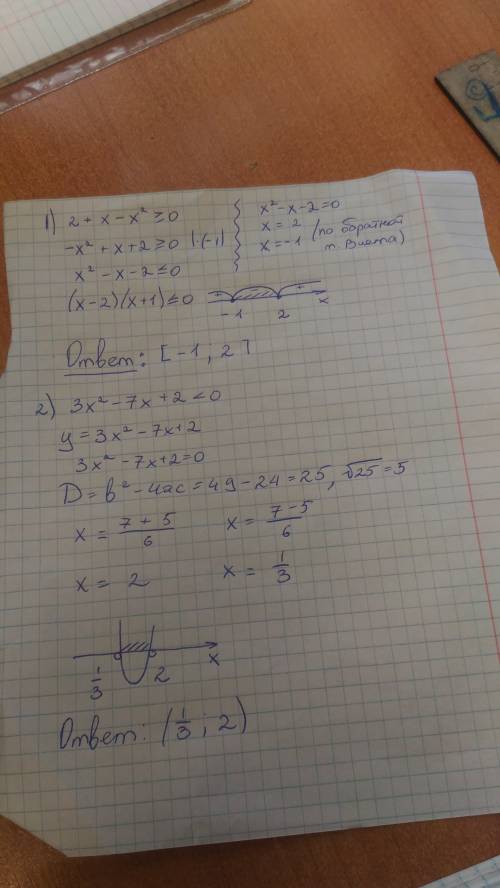 1) 2 + x - x² ≥ 0
-x² + x + 2 ≥ 0 | · (-1)
x² - x - 2 ≤ 0
(x - 2)(x + 1) ≤ 0
x² - x - 2 = 0
x = 2
x = -1 (по обратной т. Виета)
+ - +
-1 2 x
Ответ: [-1, 2]
2) 3x² - 7x + 2 < 0
y = 3x² - 7x + 2
3x² - 7x + 2 = 0
D = b² - 4ac = 49 - 24 = 25, √25 = 5
x = (7 + 5)/6 x = (7 - 5)/6
x = 2 x = 1/3
1/3 2 x
Ответ: (1/3 ; 2)